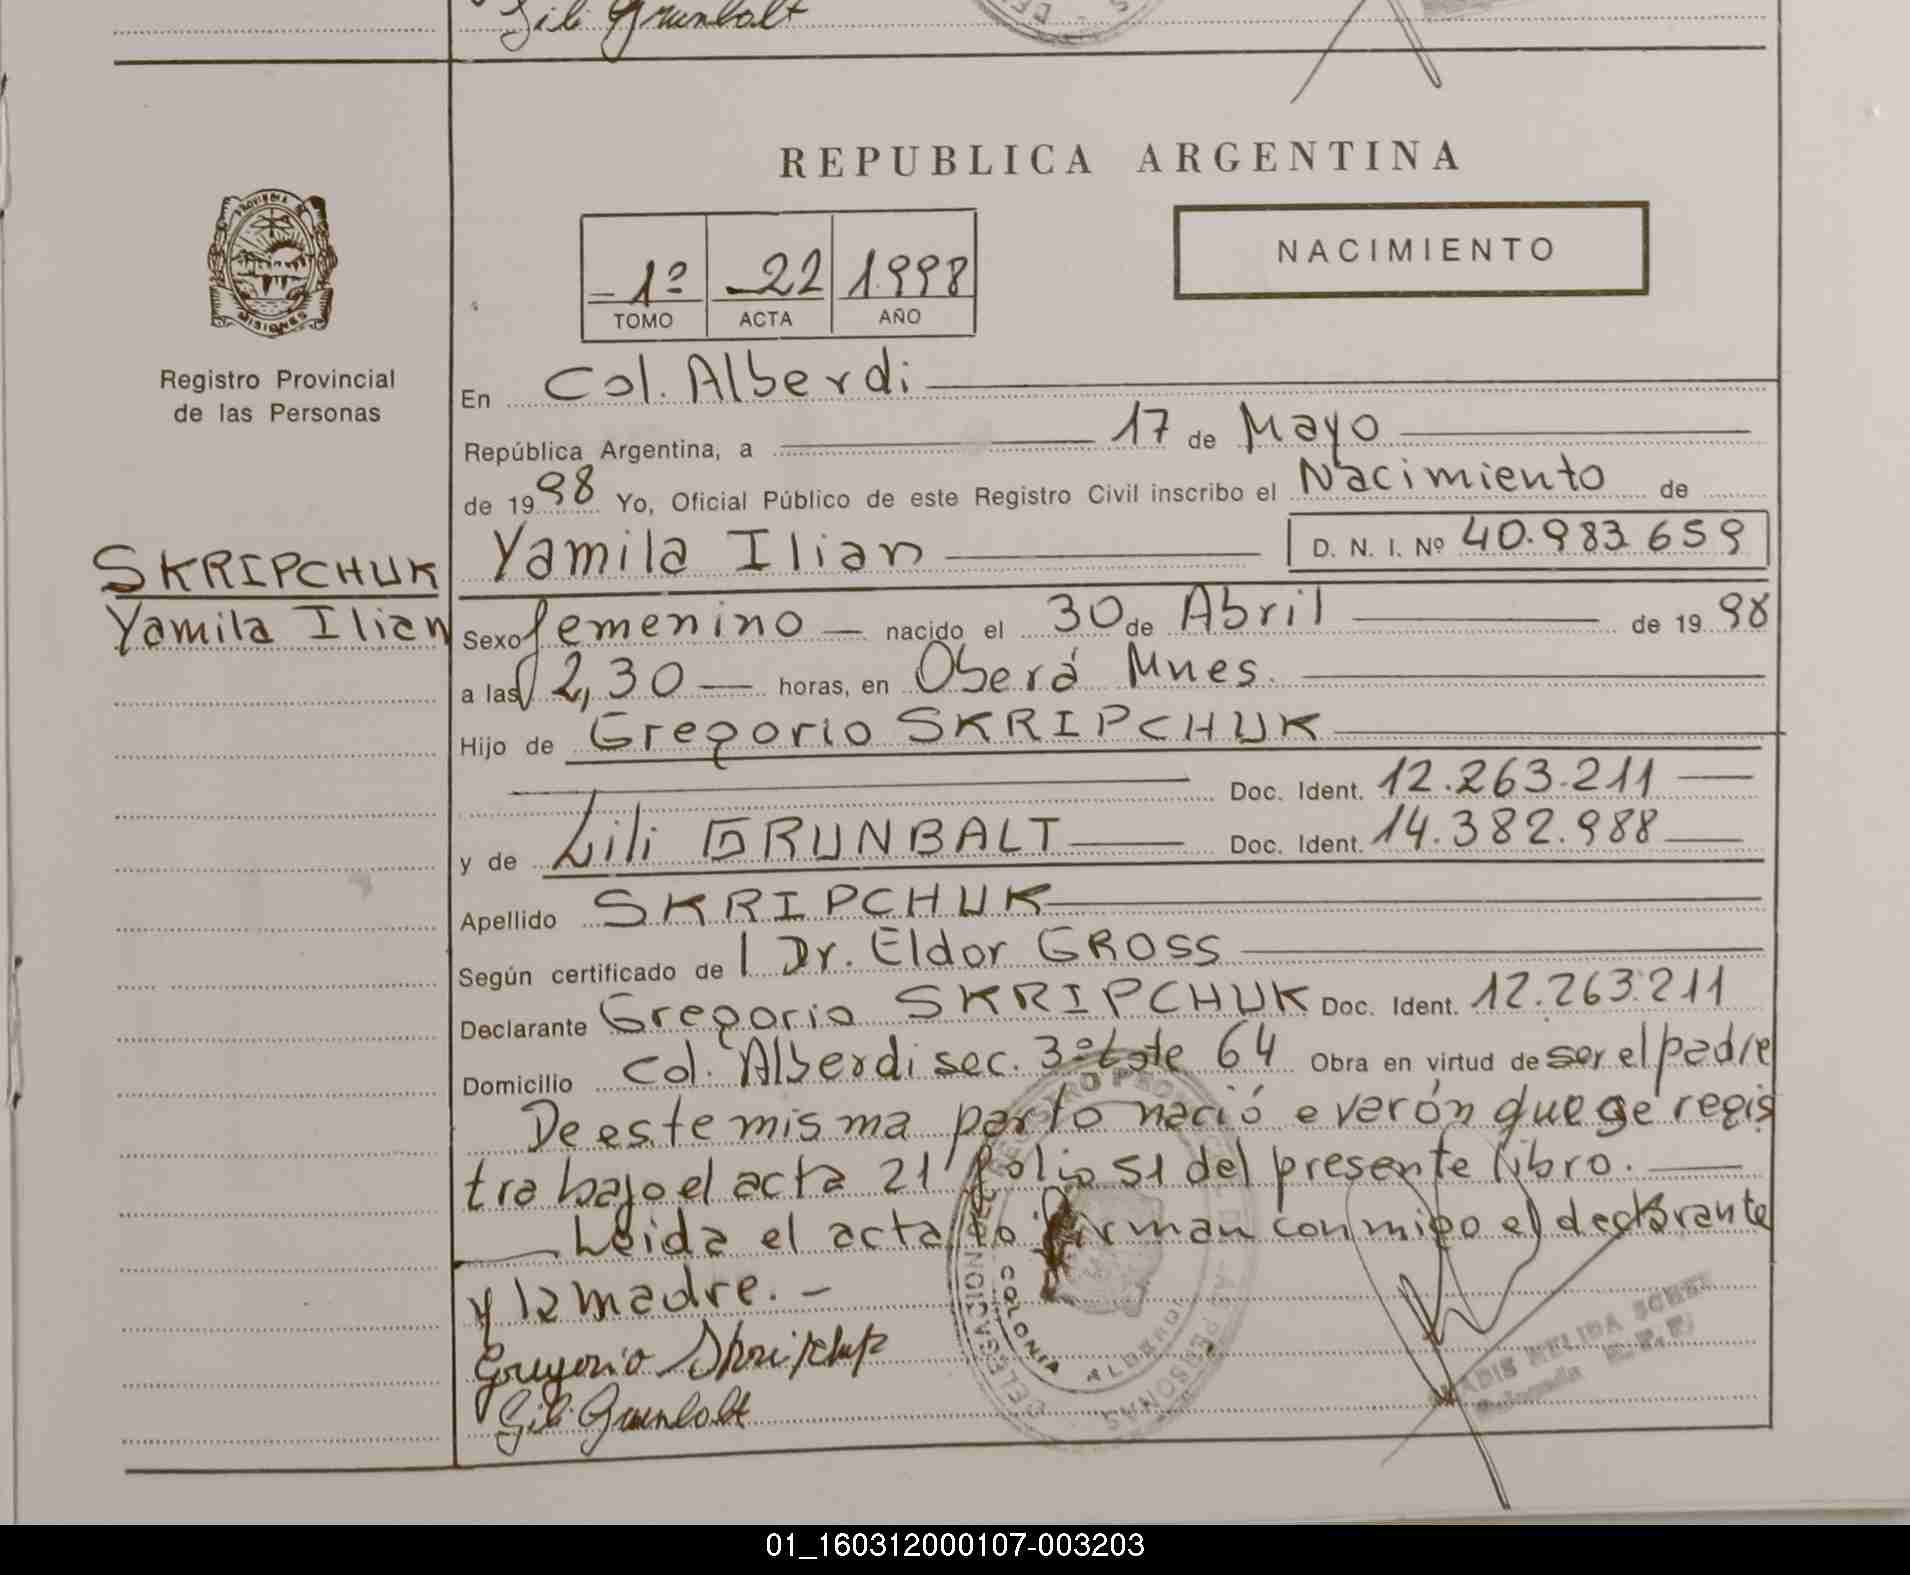 Lili Grunbalt
REPUBLICA ARGENTINA
PROVINCIA DE
MISIONES
-1º -22 1.998
TOMO ACTA AÑO
NACIMIENTO
Registro Provincial
de las Personas
En Col. Alberdi
República Argentina, a 17 de Mayo
de 1998 Yo, Oficial Público de este Registro Civil inscribo el Nacimiento de
Yamila Ilian D. N. I. Nº 40.983.659
SKRIPCHUK
Yamila Ilian
Sexo femenino nacido el 30 de Abril de 1998
a las 2,30 horas, en Oberá Mnes.
Hijo de Gregorio SKRIPCHUK
Doc. Ident. 12.263.211
y de Lili GRUNBALT Doc. Ident. 14.382.988
Apellido SKRIPCHUK
Según certificado de l Dr. Eldor GROSS
Declarante Gregorio SKRIPCHUK Doc. Ident. 12.263.211
Domicilio Col. Alberdi sec. 3º Lote 64 Obra en virtud de ser el padre
De este misma parto nació e verón que se regis
tra bajo el acta 21 folio 51 del presente libro.
Leida el acta lo firman conmigo el declarante
y la madre. -
Gregorio Skripchuk
Lili Grunbalt
COLONIA ALBERDI
DELEGACION
REGISTRO PROVINCIAL DE LAS PERSONAS
NELIDA
Delegada
01_160312000107-003203